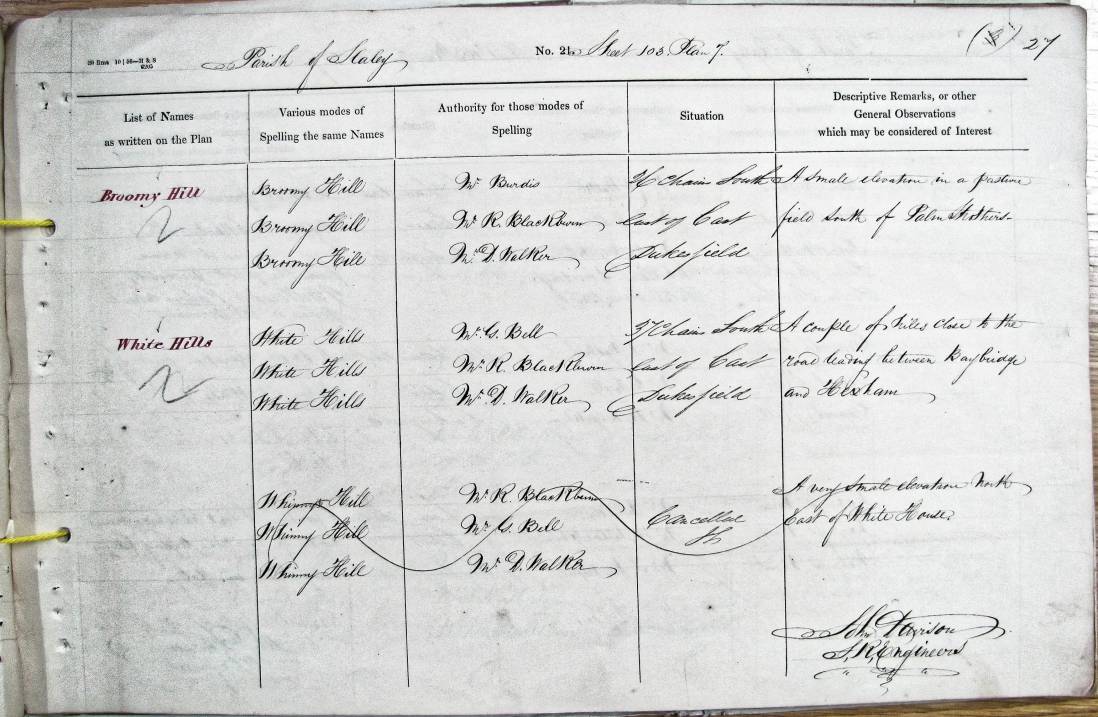 20 Rms 10 | 56—H & S
Parish of Slaley No. 21. Sheet 103. Plan 7. 27
List of Names
as written on the Plan
Various modes of
Spelling the same Names
Authority for those modes of
Spelling
Situation
Descriptive Remarks, or other
General Observations
which may be considered of Interest
Broomy Hill Broomy Hill Mr. Burdis Chains South A small elevation in a pasture
Broomy Hill Mr. R. Blackburn East of East field South of Palm Strothers
Broomy Hill Mr. D. Walker Dukesfield
White Hills White Hills Mr. G. Bell 37 Chains South A couple of hills close to the
White Hills Mr. R. Blackburn East of East road leading between Baybridge
White Hills Mr. D. Walker Dukesfield and Hexham
Whinny Hill Mr. R. Blackburn A very small elevation North
Whinny Hill Mr. G. Bell Cancelled East of White House.
Whinny Hill Mr. D. Walker
John Davison
S. R. Engineers